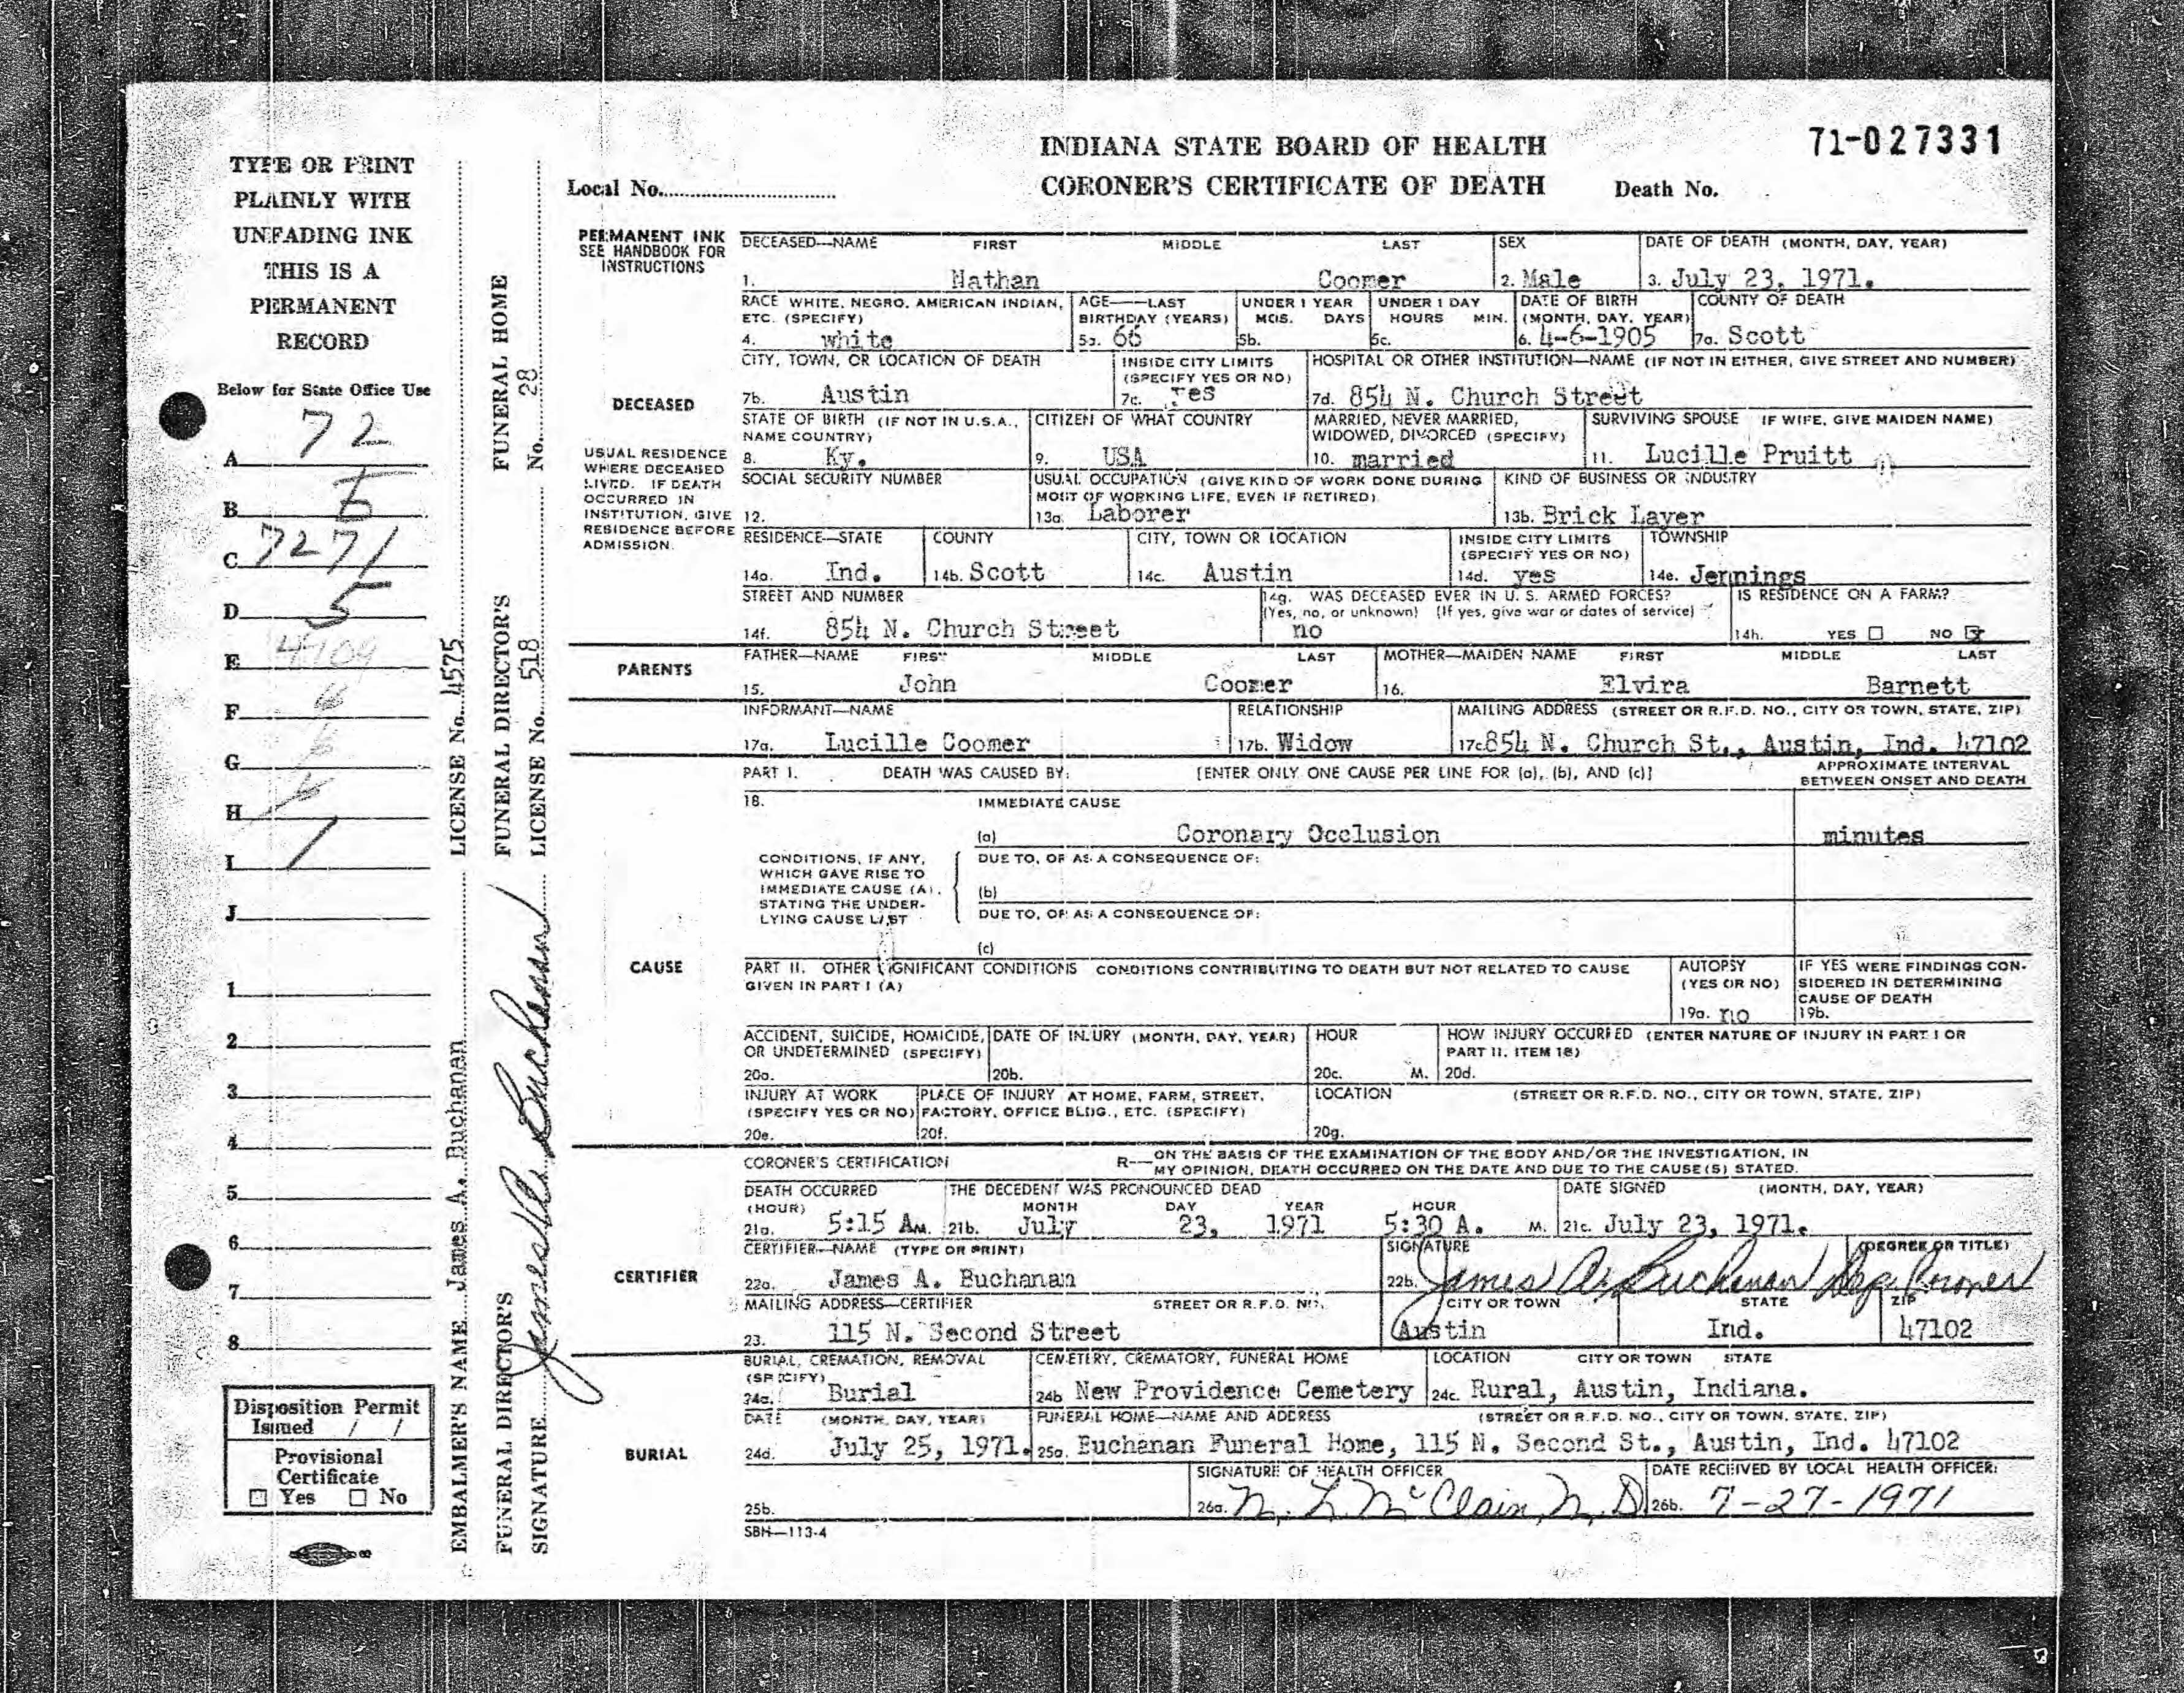 71-027331
INDIANA STATE BOARD OF HEALTH
CORONER'S CERTIFICATE OF DEATH
Local No.
Death No.
TYPE OR PRINT
PLAINLY WITH
UNFADING INK
THIS IS A
PERMANENT
RECORD
Below for State Office Use
A 72
B 5
C 7271
D 5
E 4709
F 6
G 6
H 6
I 1
J
1
2
3
4
5
6
7
8
Disposition Permit
Issued / /
Provisional
Certificate
☐ Yes ☐ No
EMBALMER'S NAME James A. Buchanan LICENSE No. 4575
FUNERAL DIRECTOR'S SIGNATURE James A. Buchanan
FUNERAL DIRECTOR'S LICENSE No. 518
FUNERAL HOME No. 28
PERMANENT INK
SEE HANDBOOK FOR
INSTRUCTIONS
DECEASED
USUAL RESIDENCE
WHERE DECEASED
LIVED. IF DEATH
OCCURRED IN
INSTITUTION, GIVE
RESIDENCE BEFORE
ADMISSION.
DECEASED—NAME FIRST MIDDLE LAST SEX DATE OF DEATH (MONTH, DAY, YEAR)
1. Nathan Coomer 2. Male 3. July 23, 1971.
RACE WHITE, NEGRO, AMERICAN INDIAN, AGE—LAST UNDER 1 YEAR UNDER 1 DAY DATE OF BIRTH COUNTY OF DEATH
ETC. (SPECIFY) BIRTHDAY (YEARS) MOS. DAYS HOURS MIN. (MONTH, DAY, YEAR)
4. white 5a. 66 5b. 5c. 6. 4-6-1905 7a. Scott
CITY, TOWN, OR LOCATION OF DEATH INSIDE CITY LIMITS HOSPITAL OR OTHER INSTITUTION—NAME (IF NOT IN EITHER, GIVE STREET AND NUMBER)
(SPECIFY YES OR NO)
7b. Austin 7c. yes 7d. 854 N. Church Street
STATE OF BIRTH (IF NOT IN U.S.A., CITIZEN OF WHAT COUNTRY MARRIED, NEVER MARRIED, SURVIVING SPOUSE IF WIFE, GIVE MAIDEN NAME)
NAME COUNTRY) WIDOWED, DIVORCED (SPECIFY)
8. Ky. 9. USA 10. married 11. Lucille Pruitt
SOCIAL SECURITY NUMBER USUAL OCCUPATION (GIVE KIND OF WORK DONE DURING KIND OF BUSINESS OR INDUSTRY
MOST OF WORKING LIFE, EVEN IF RETIRED)
12. 13a. Laborer 13b. Brick Layer
RESIDENCE—STATE COUNTY CITY, TOWN OR LOCATION INSIDE CITY LIMITS TOWNSHIP
(SPECIFY YES OR NO)
14a. Ind. 14b. Scott 14c. Austin 14d. yes 14e. Jennings
STREET AND NUMBER 14g. WAS DECEASED EVER IN U. S. ARMED FORCES? IS RESIDENCE ON A FARM?
(Yes, no, or unknown) (If yes, give war or dates of service)
14f. 854 N. Church Street no 14h. YES ☐ NO ☒
PARENTS
FATHER—NAME FIRST MIDDLE LAST MOTHER—MAIDEN NAME FIRST MIDDLE LAST
15. John Coomer 16. Elvira Barnett
INFORMANT—NAME RELATIONSHIP MAILING ADDRESS (STREET OR R.F.D. NO., CITY OR TOWN, STATE, ZIP)
17a. Lucille Coomer 17b. Widow 17c. 854 N. Church St., Austin, Ind. 47102
PART I. DEATH WAS CAUSED BY: [ENTER ONLY ONE CAUSE PER LINE FOR (a), (b), AND (c)] APPROXIMATE INTERVAL
BETWEEN ONSET AND DEATH
18. IMMEDIATE CAUSE
(a) Coronary Occlusion minutes
CONDITIONS, IF ANY,
WHICH GAVE RISE TO
IMMEDIATE CAUSE (A),
STATING THE UNDER-
LYING CAUSE LAST
DUE TO, OR AS A CONSEQUENCE OF:
(b)
DUE TO, OR AS A CONSEQUENCE OF:
(c)
CAUSE
PART II. OTHER SIGNIFICANT CONDITIONS CONDITIONS CONTRIBUTING TO DEATH BUT NOT RELATED TO CAUSE
GIVEN IN PART I (A)
AUTOPSY
(YES OR NO)
19a. no
IF YES WERE FINDINGS CON-
SIDERED IN DETERMINING
CAUSE OF DEATH
19b.
ACCIDENT, SUICIDE, HOMICIDE, DATE OF INJURY (MONTH, DAY, YEAR) HOUR HOW INJURY OCCURRED (ENTER NATURE OF INJURY IN PART I OR
OR UNDETERMINED (SPECIFY) PART II, ITEM 18)
20a. 20b. 20c. M. 20d.
INJURY AT WORK PLACE OF INJURY AT HOME, FARM, STREET, LOCATION (STREET OR R.F.D. NO., CITY OR TOWN, STATE, ZIP)
(SPECIFY YES OR NO) FACTORY, OFFICE BLDG., ETC. (SPECIFY)
20e. 20f. 20g.
CERTIFIER
CORONER'S CERTIFICATION R—ON THE BASIS OF THE EXAMINATION OF THE BODY AND/OR THE INVESTIGATION, IN
MY OPINION, DEATH OCCURRED ON THE DATE AND DUE TO THE CAUSE(S) STATED.
DEATH OCCURRED THE DECEDENT WAS PRONOUNCED DEAD DATE SIGNED (MONTH, DAY, YEAR)
(HOUR) MONTH DAY YEAR HOUR
21a. 5:15 AM. 21b. July 23, 1971 5:30 A. M. 21c. July 23, 1971.
CERTIFIER—NAME (TYPE OR PRINT) SIGNATURE (DEGREE OR TITLE)
22a. James A. Buchanan 22b. James A. Buchanan Dep. Coroner
MAILING ADDRESS—CERTIFIER STREET OR R.F.D. NO. CITY OR TOWN STATE ZIP
23. 115 N. Second Street Austin Ind. 47102
BURIAL
BURIAL, CREMATION, REMOVAL CEMETERY, CREMATORY, FUNERAL HOME LOCATION CITY OR TOWN STATE
(SPECIFY)
24a. Burial 24b New Providence Cemetery 24c. Rural, Austin, Indiana.
DATE (MONTH, DAY, YEAR) FUNERAL HOME—NAME AND ADDRESS (STREET OR R.F.D. NO., CITY OR TOWN, STATE, ZIP)
24d. July 25, 1971. 25a. Buchanan Funeral Home, 115 N. Second St., Austin, Ind. 47102
SIGNATURE OF HEALTH OFFICER DATE RECEIVED BY LOCAL HEALTH OFFICER:
25b. 26a. N. L. McClain, M. D 26b. 7-27-1971
SBH—113-4